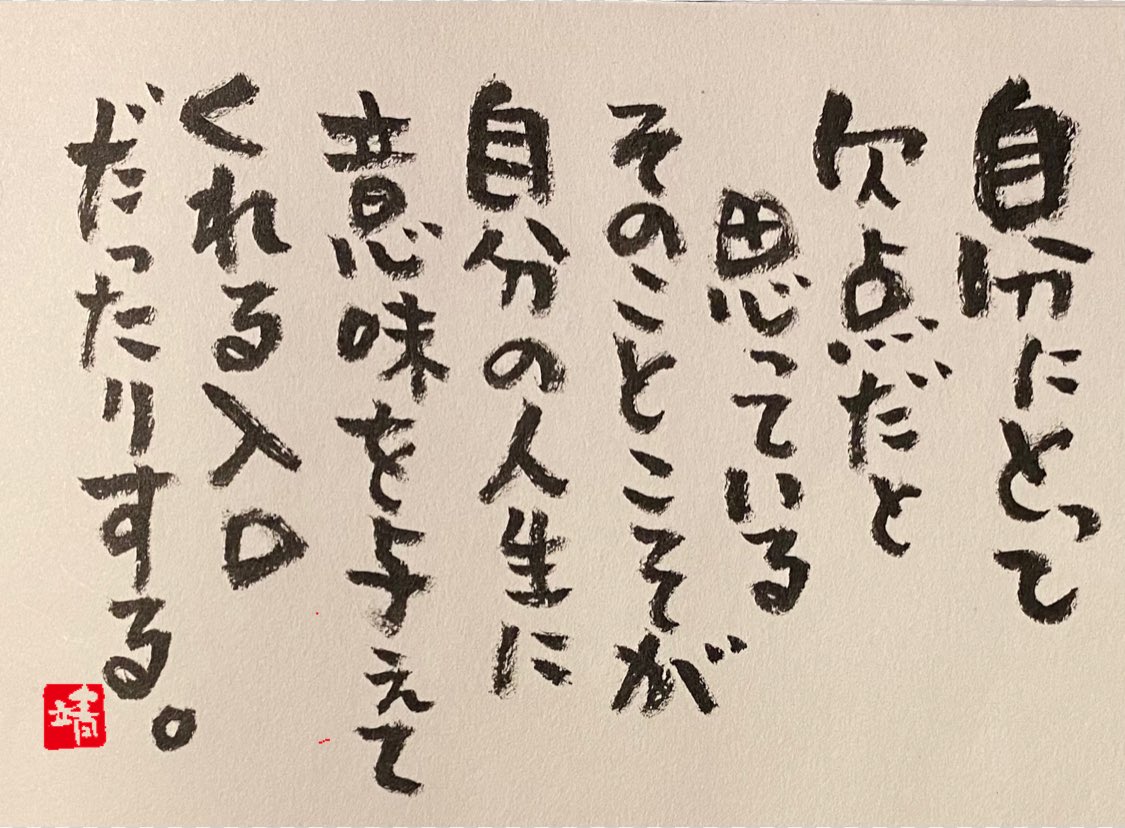 自分にとって
欠点だと
思っている
そのことこそが
自分の人生に
意味を与えて
くれる入口
だったりする。
靖